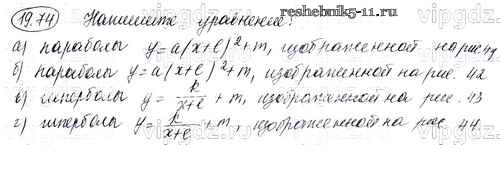 reshebnik5-11.ru
19.74 Напишите уравнение:
а) параболы y=a(x+l)²+m, изображенной на рис. 41
б) параболы y=a(x+l)²+m, изображенной на рис. 42
в) гиперболы y = k/(x+l) + m, изображенной на рис. 43
г) гиперболы y = k/(x+l) + m, изображенной на рис. 44.